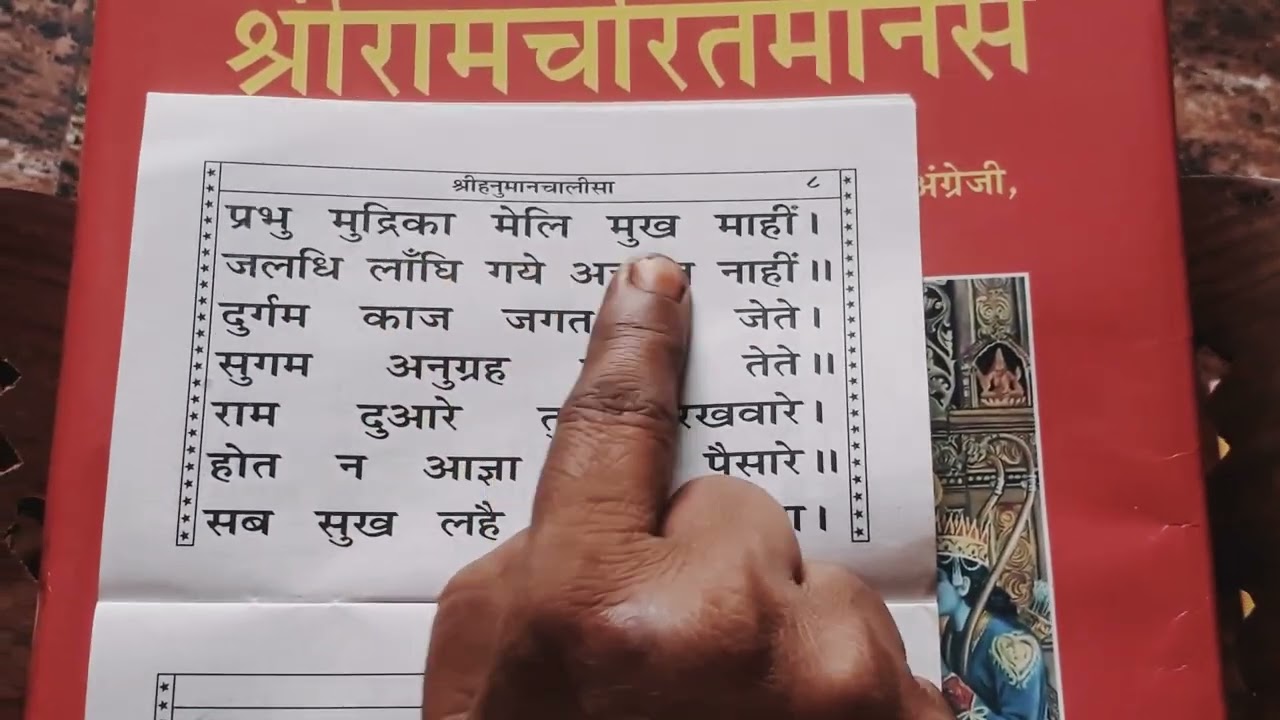 श्रीरामचरितमानस
अंग्रेजी,
श्रीहनुमानचालीसा ८
प्रभु मुद्रिका मेलि मुख माहीं।
जलधि लाँघि गये नाहीं॥
दुर्गम काज जगत जेते।
सुगम अनुग्रह तेते॥
राम दुआरे
होत न आज्ञा पैसारे॥
सब सुख लहै